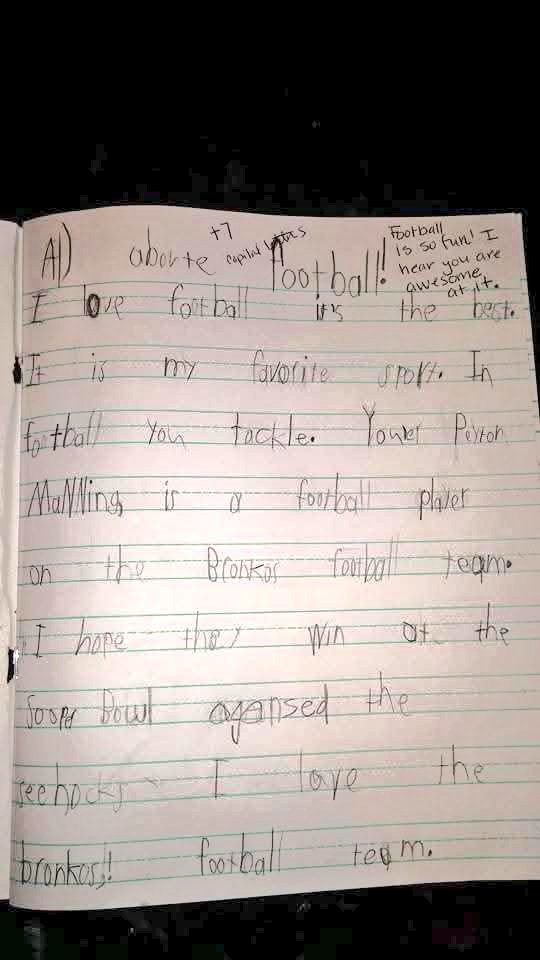 All aborte football!
+7
capital letters
Football
is so fun! I
hear you are
awesome
at it.
I love football it's the best.
It is my favorite sport. In
football you tackle. Peyton
MaNNing is a football player
on the Bronkos football team.
I hope they win at the
Sooper Bowl agansed the
seehocks I love the
bronkos!! football team.